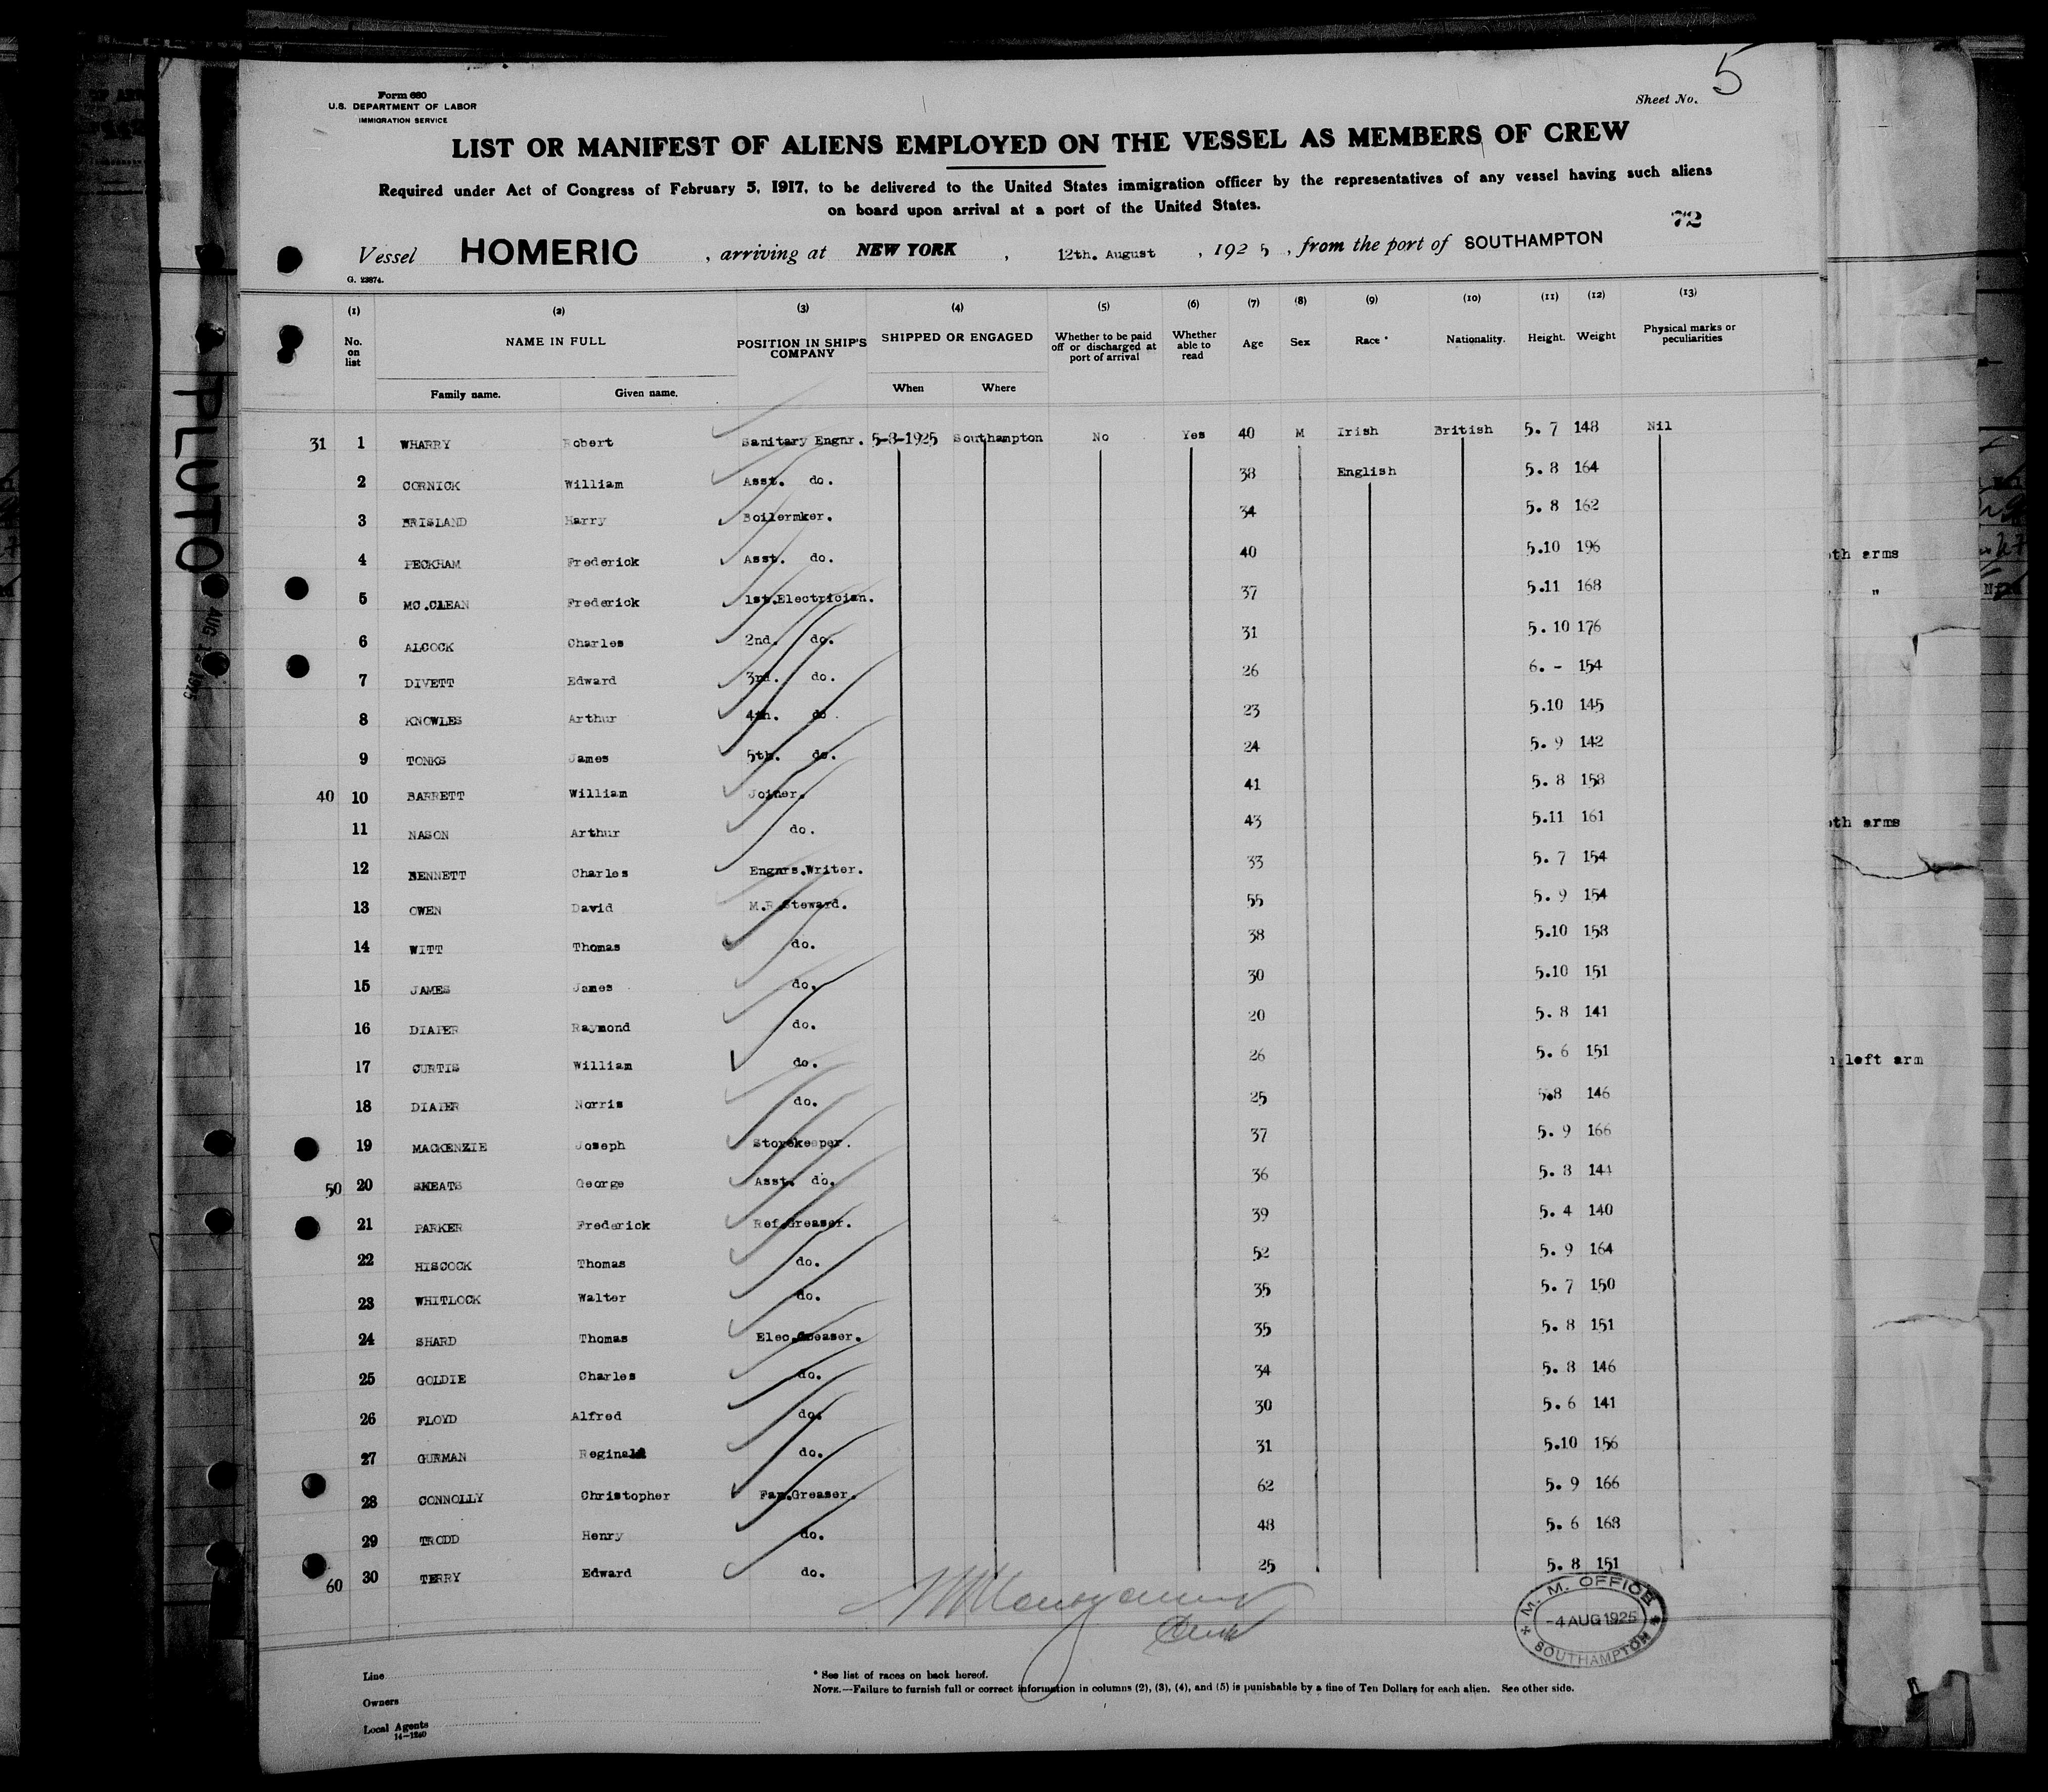 Form 680
U.S. DEPARTMENT OF LABOR
IMMIGRATION SERVICE
Sheet No. 5
LIST OR MANIFEST OF ALIENS EMPLOYED ON THE VESSEL AS MEMBERS OF CREW
Required under Act of Congress of February 5, 1917, to be delivered to the United States immigration officer by the representatives of any vessel having such aliens
on board upon arrival at a port of the United States.
72
Vessel HOMERIC , arriving at NEW YORK , 12th. August , 1925 , from the port of SOUTHAMPTON
G. 23874.
(1) (2) (3) (4) (5) (6) (7) (8) (9) (10) (11) (12) (13)
No. on list NAME IN FULL POSITION IN SHIP'S COMPANY SHIPPED OR ENGAGED Whether to be paid off or discharged at port of arrival Whether able to read Age Sex Race * Nationality. Height. Weight Physical marks or peculiarities
Family name. Given name. When Where
31 1 WHARRY Robert Sanitary Engnr. 5-8-1925 Southampton No Yes 40 M Irish British 5. 7 148 Nil
2 CORNICK William Asst. do. 38 English 5. 8 164
3 BRISLAND Harry Boilermker. 34 5. 8 162
4 PECKHAM Frederick Asst. do. 40 5.10 196
5 MC.CLEAN Frederick 1st.Electrician. 37 5.11 168
6 ALCOCK Charles 2nd. do. 31 5. 10 176
7 DIVETT Edward 3rd. do. 26 6. - 154
8 KNOWLES Arthur 4th. do. 23 5.10 145
9 TONKS James 5th. do. 24 5. 9 142
40 10 BARRETT William Joiner. 41 5. 8 158
11 NASON Arthur do. 43 5.11 161
12 BENNETT Charles Engnrs.Writer. 33 5. 7 154
13 OWEN David M.R.Steward. 55 5. 9 154
14 WITT Thomas do. 38 5.10 158
15 JAMES James do. 30 5.10 151
16 DIAPER Raymond do. 20 5. 8 141
17 CURTIS William do. 26 5. 6 151
18 DIAPER Norris do. 25 5.8 146
19 MACKENZIE Joseph Storekeeper. 37 5. 9 166
50 20 SKEATS George Asst. do. 36 5. 8 144
21 PARKER Frederick Ref.Greaser. 39 5. 4 140
22 HISCOCK Thomas do. 52 5. 9 164
23 WHITLOCK Walter do. 35 5. 7 150
24 SHARD Thomas Elec.Greaser. 35 5. 8 151
25 GOLDIE Charles do. 34 5. 8 146
26 FLOYD Alfred do. 30 5. 6 141
27 GURMAN Reginald do. 31 5.10 156
28 CONNOLLY Christopher Fan.Greaser. 62 5. 9 166
29 TRODD Henry do. 48 5. 6 168
60 30 TERRY Edward do. 25 5. 8 151
M. M. OFFICE
-4 AUG 1925
SOUTHAMPTON
Line
Owners
Local Agents
14-1240
* See list of races on back hereof.
NOTE.—Failure to furnish full or correct information in columns (2), (3), (4), and (5) is punishable by a fine of Ten Dollars for each alien. See other side.
PLUTO
AUG 12 1925
arms
"
arms
left arm